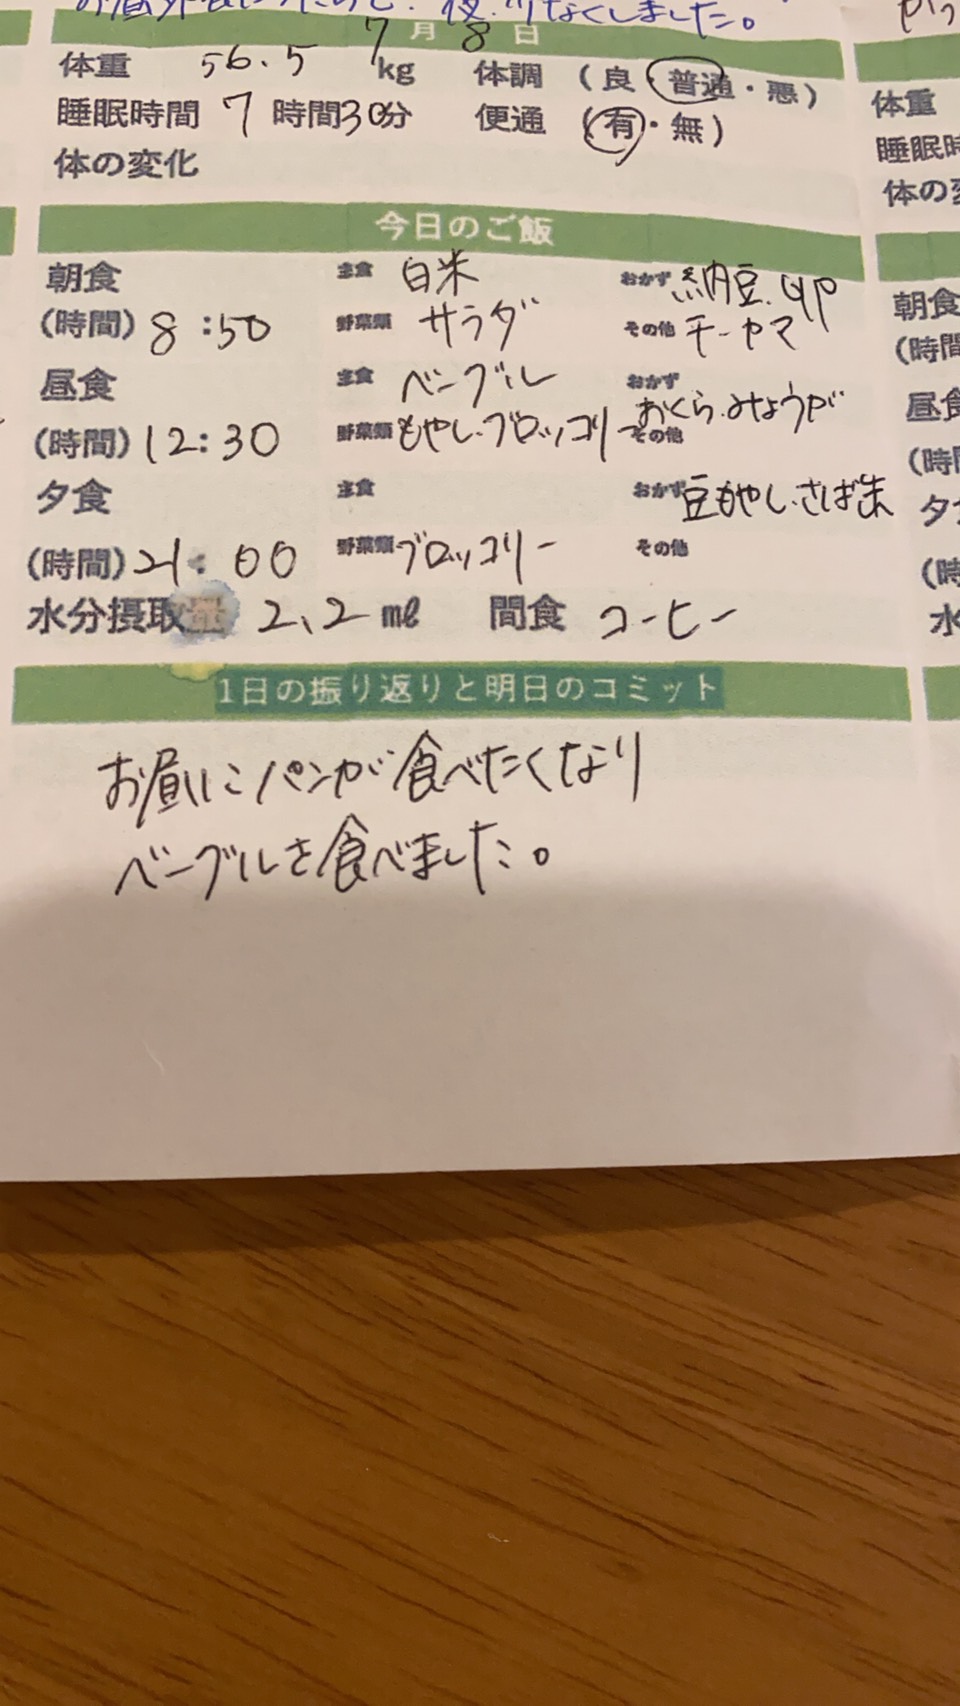 夜少なくしました。
7月8日
体重 56.5kg 体調 (良・普通・悪)
睡眠時間 7時間30分 便通 (有・無)
体の変化
今日のご飯
朝食 主食 白米 おかず 納豆.
(時間) 8:50 野菜類 サラダ その他
昼食 主食 ベーグル おかず おくら.みょうが
(時間) 12:30 野菜類 もやし.ブロッコリー その他
夕食 主食 おかず 豆もやし.さば缶
(時間) 21:00 野菜類 ブロッコリー その他
水分摂取量 2,2ml 間食 コーヒー
1日の振り返りと明日のコミット
お昼にパンが食べたくなり
ベーグルを食べました。
体重
睡眠時
体の変
朝食
(時間
昼食
(時間
夕
(時
水